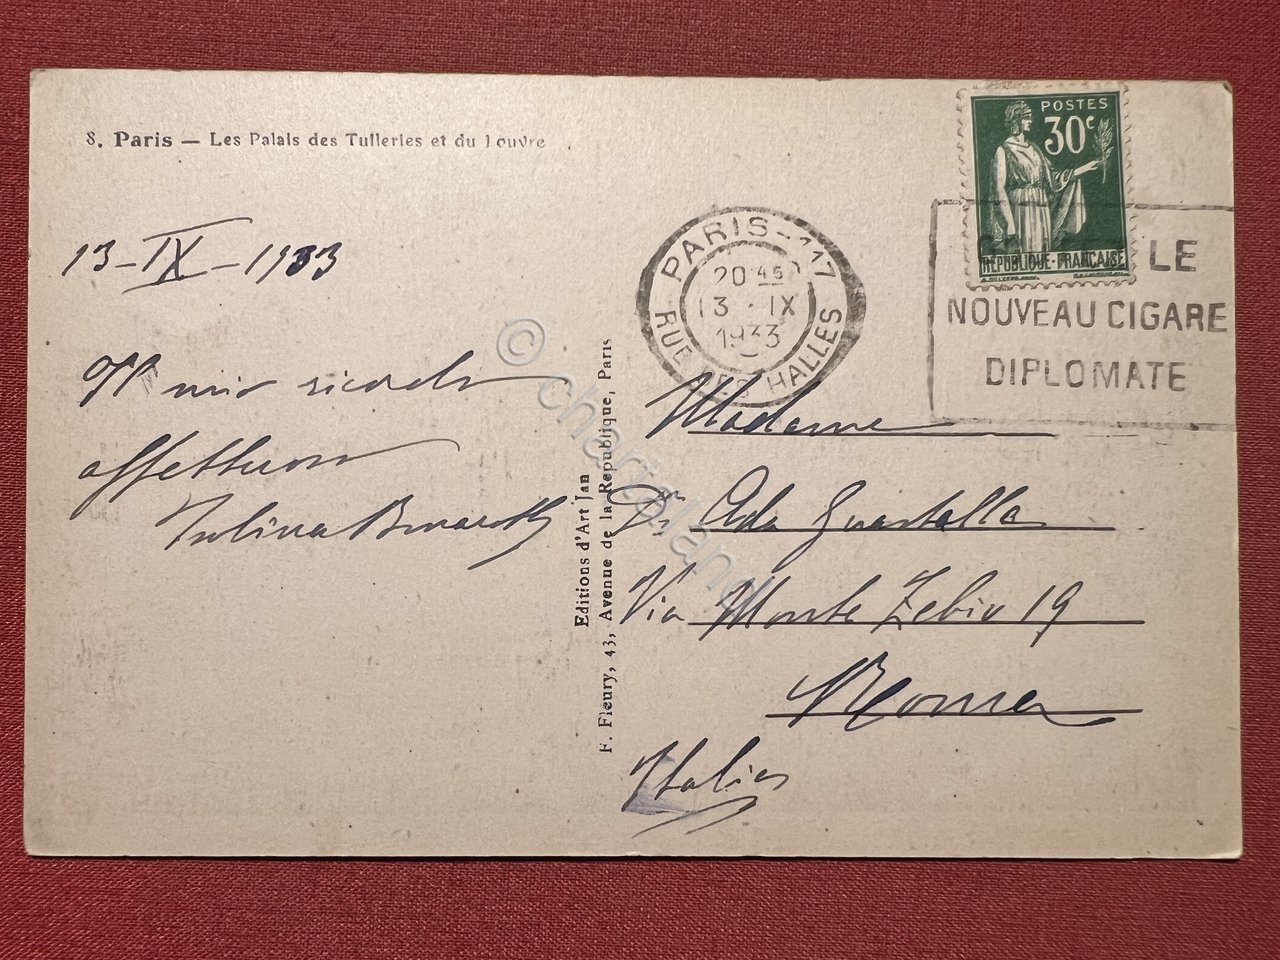 8. Paris — Les Palais des Tuileries et du Louvre
POSTES
30c
REPUBLIQUE·FRANÇAISE
PARIS-117
20 45
13 · IX
1933
RUE DES HALLES
LE
NOUVEAU CIGARE
DIPLOMATE
13-IX-1933
Il mio ricordo
affettuoso
Editions d'Art Jan
F. Fleury, 43, Avenue de la Republique, Paris
Madame
Ada Guastalla
Via Monte Zebio 19
Roma
Italia
© chartaland